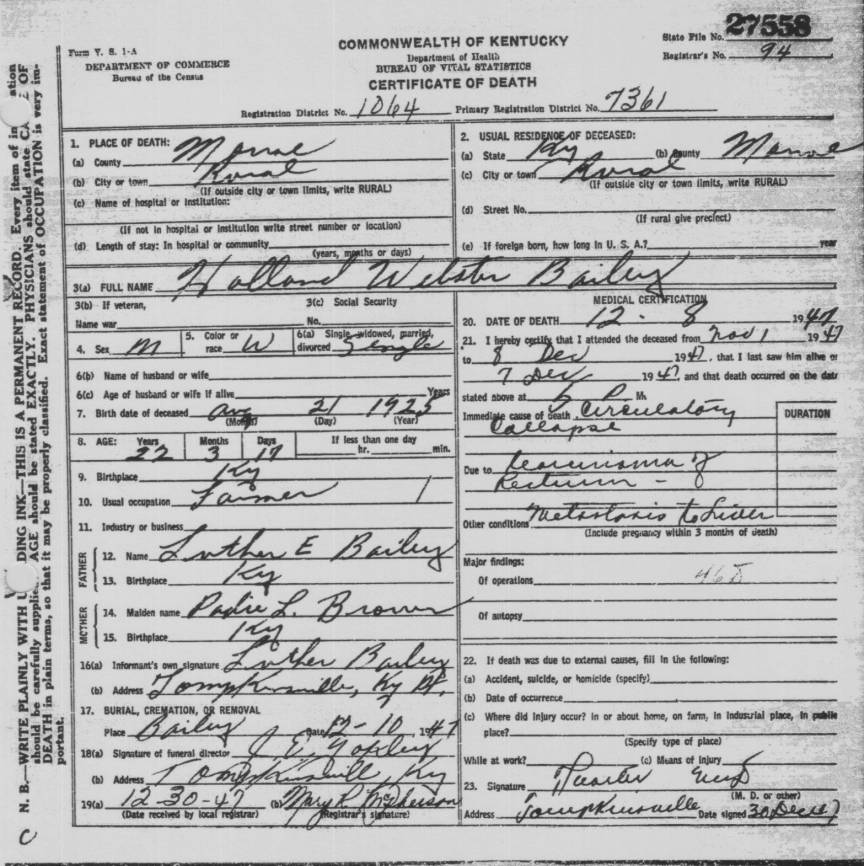 27558
State File No.
Form V. S. 1-A
COMMONWEALTH OF KENTUCKY
Registrar's No. 94
DEPARTMENT OF COMMERCE
Department of Health
Bureau of the Census
BUREAU OF VITAL STATISTICS
CERTIFICATE OF DEATH
Registration District No. 1064 Primary Registration District No. 7361
1. PLACE OF DEATH:
(a) County Monroe
(b) City or town Rural
(If outside city or town limits, write RURAL)
(c) Name of hospital or institution:
(If not in hospital or institution write street number or location)
(d) Length of stay: In hospital or community
(years, months or days)
2. USUAL RESIDENCE OF DECEASED:
(a) State Ky (b) County Monroe
(c) City or town Rural
(If outside city or town limits, write RURAL)
(d) Street No.
(If rural give precinct)
(e) If foreign born, how long in U. S. A.? year
3(a) FULL NAME Holland Webster Bailey
3(b) If veteran, 3(c) Social Security
Name war No.
4. Sex M 5. Color or race W 6(a) Single, widowed, married, divorced Single
6(b) Name of husband or wife
6(c) Age of husband or wife if alive Years
7. Birth date of deceased Aug 21 1925
(Month) (Day) (Year)
8. AGE: Years Months Days If less than one day
22 3 17 hr. min.
9. Birthplace Ky
10. Usual occupation Farmer
11. Industry or business
FATHER
12. Name Luther E Bailey
13. Birthplace Ky
MOTHER
14. Maiden name L. Brown
15. Birthplace Ky
16(a) Informant's own signature Luther Bailey
(b) Address Tompkinsville, Ky
17. BURIAL, CREMATION, OR REMOVAL
Place Bailey Date 12-10, 1947
18(a) Signature of funeral director J E Yokley
(b) Address Tompkinsville, Ky
19(a) 12-30-47 (b) Mary R McPherson
(Date received by local registrar) (Registrar's signature)
MEDICAL CERTIFICATION
20. DATE OF DEATH 12 - 8 1947
21. I hereby certify that I attended the deceased from Nov 1 1947
to 8 Dec 1947, that I last saw him alive on
7 Dec 1947, and that death occurred on the date
stated above at 5 P M.
Immediate cause of death Circulatory
Collapse
DURATION
Due to Carcinoma of
Rectum -
Metastasis to Liver
Other conditions
(Include pregnancy within 3 months of death)
Major findings:
Of operations
Of autopsy
22. If death was due to external causes, fill in the following:
(a) Accident, suicide, or homicide (specify)
(b) Date of occurrence
(c) Where did injury occur? In or about home, on farm, in industrial place, in public
place?
(Specify type of place)
While at work? (c) Means of injury
23. Signature
(M. D. or other)
Address Tompkinsville Date signed 30 Dec 47
N. B.—WRITE PLAINLY WITH DING INK—THIS IS A PERMANENT RECORD. Every item of in ation
should be carefully supplie AGE should be stated EXACTLY. PHYSICIANS should state CA E OF
DEATH in plain terms, so that it may be properly classified. Exact statement of OCCUPATION is very im-
portant.